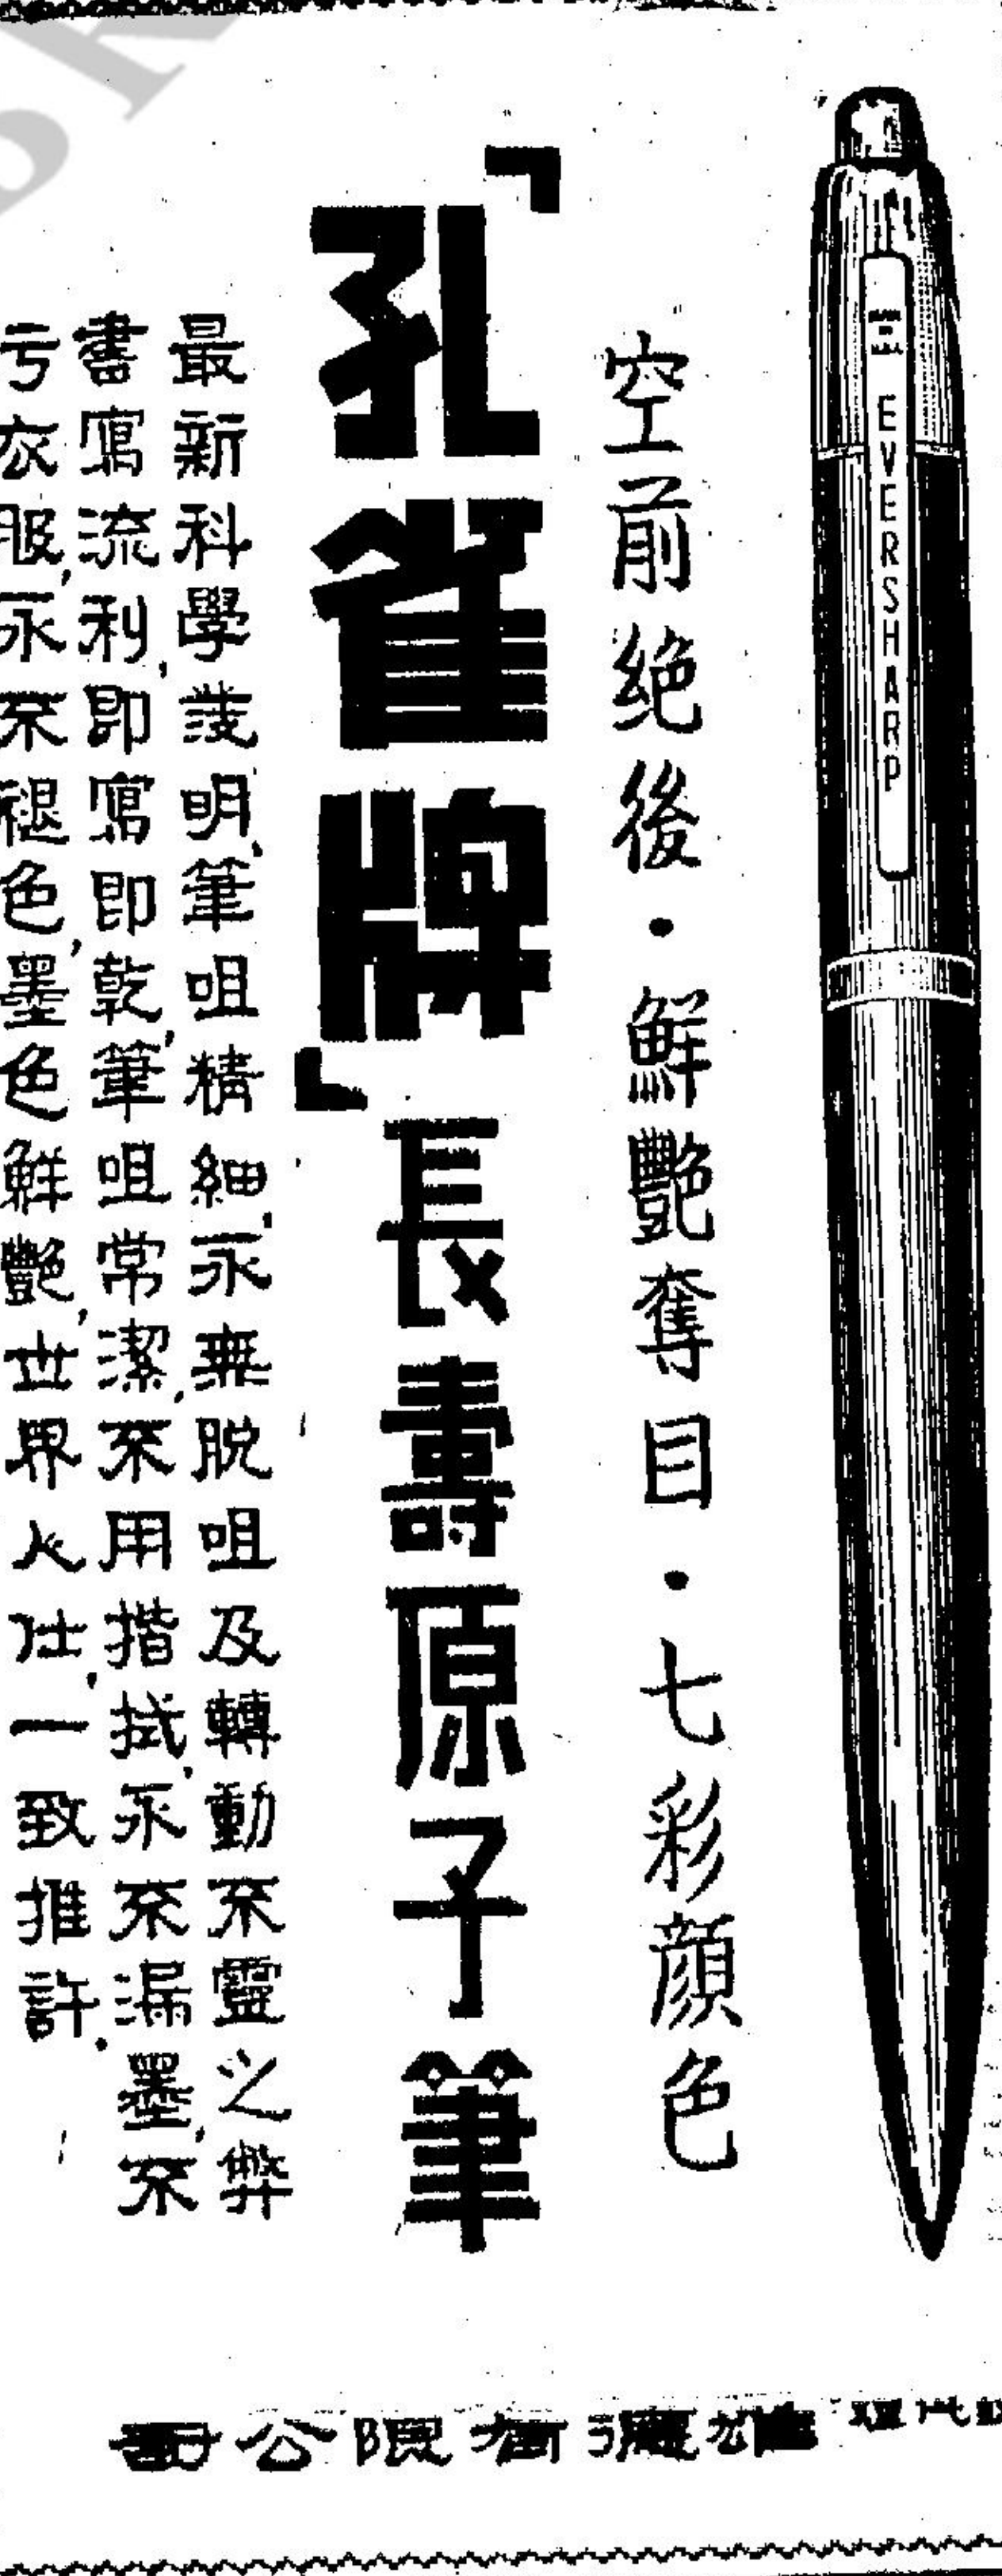 EVERSHARP
空前絕後・鮮艷奪目・七彩顏色
「孔雀牌」長壽原子筆
最新科學發明,筆咀精細,永無脫咀及轉動不靈之弊
書寫流利,即寫即乾,筆咀常潔,不用揩拭,永不漏墨,不
污衣服,永不褪色,墨色鮮艷,世界人仕,一致推許.
有限公司